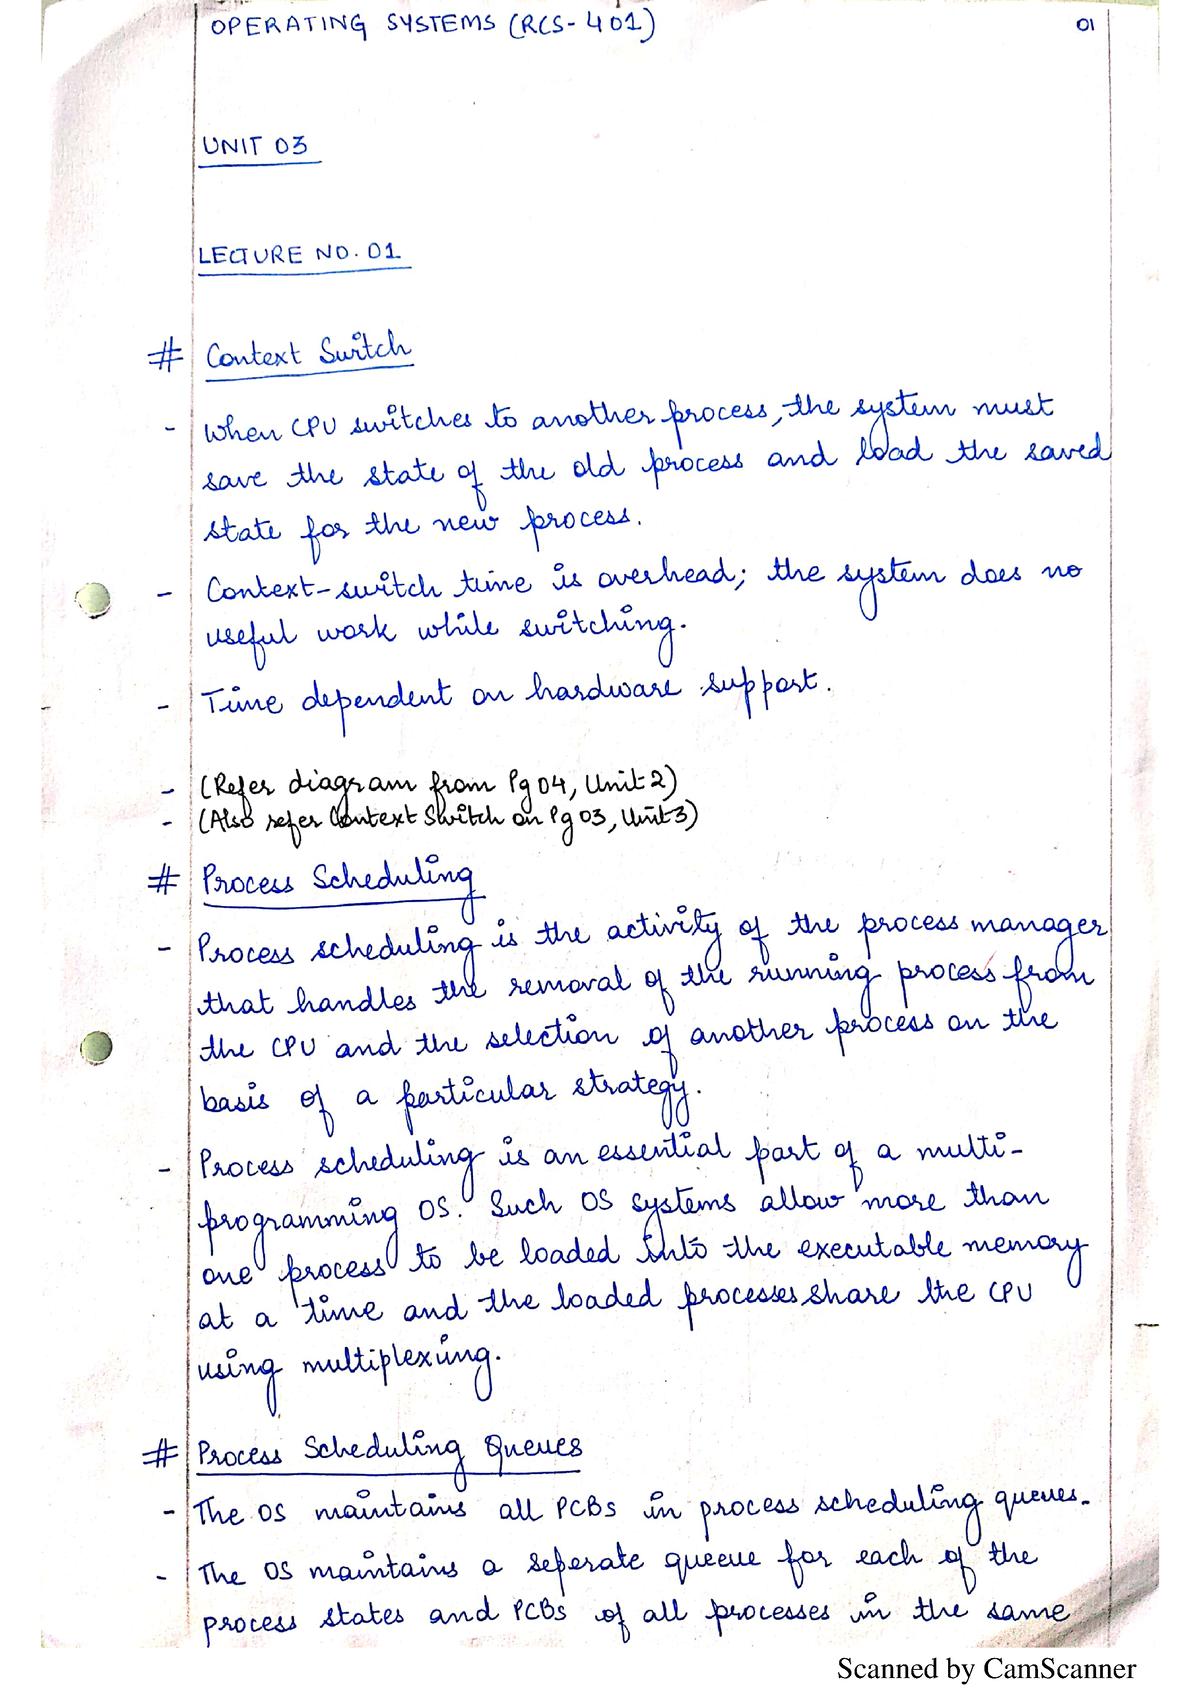 OPERATING SYSTEMS (RCS-401)
01
UNIT 03
LECTURE NO. 01
# Context Switch
- When CPU switches to another process, the system must
save the state of the old process and load the saved
state for the new process.
- Context-switch time is overhead; the system does no
useful work while switching.
- Time dependent on hardware support.
- (Refer diagram from Pg 04, Unit 2)
- (Also refer Context Switch on Pg 03, Unit 3)
# Process Scheduling
- Process scheduling is the activity of the process manager
that handles the removal of the running process from
the CPU and the selection of another process on the
basis of a particular strategy.
- Process scheduling is an essential part of a multi-
programming OS. Such OS systems allow more than
one process to be loaded into the executable memory
at a time and the loaded processes share the CPU
using multiplexing.
# Process Scheduling Queues
- The OS maintains all PCBs in process scheduling queues.
- The OS maintains a seperate queue for each of the
process states and PCBs of all processes in the same
Scanned by CamScanner